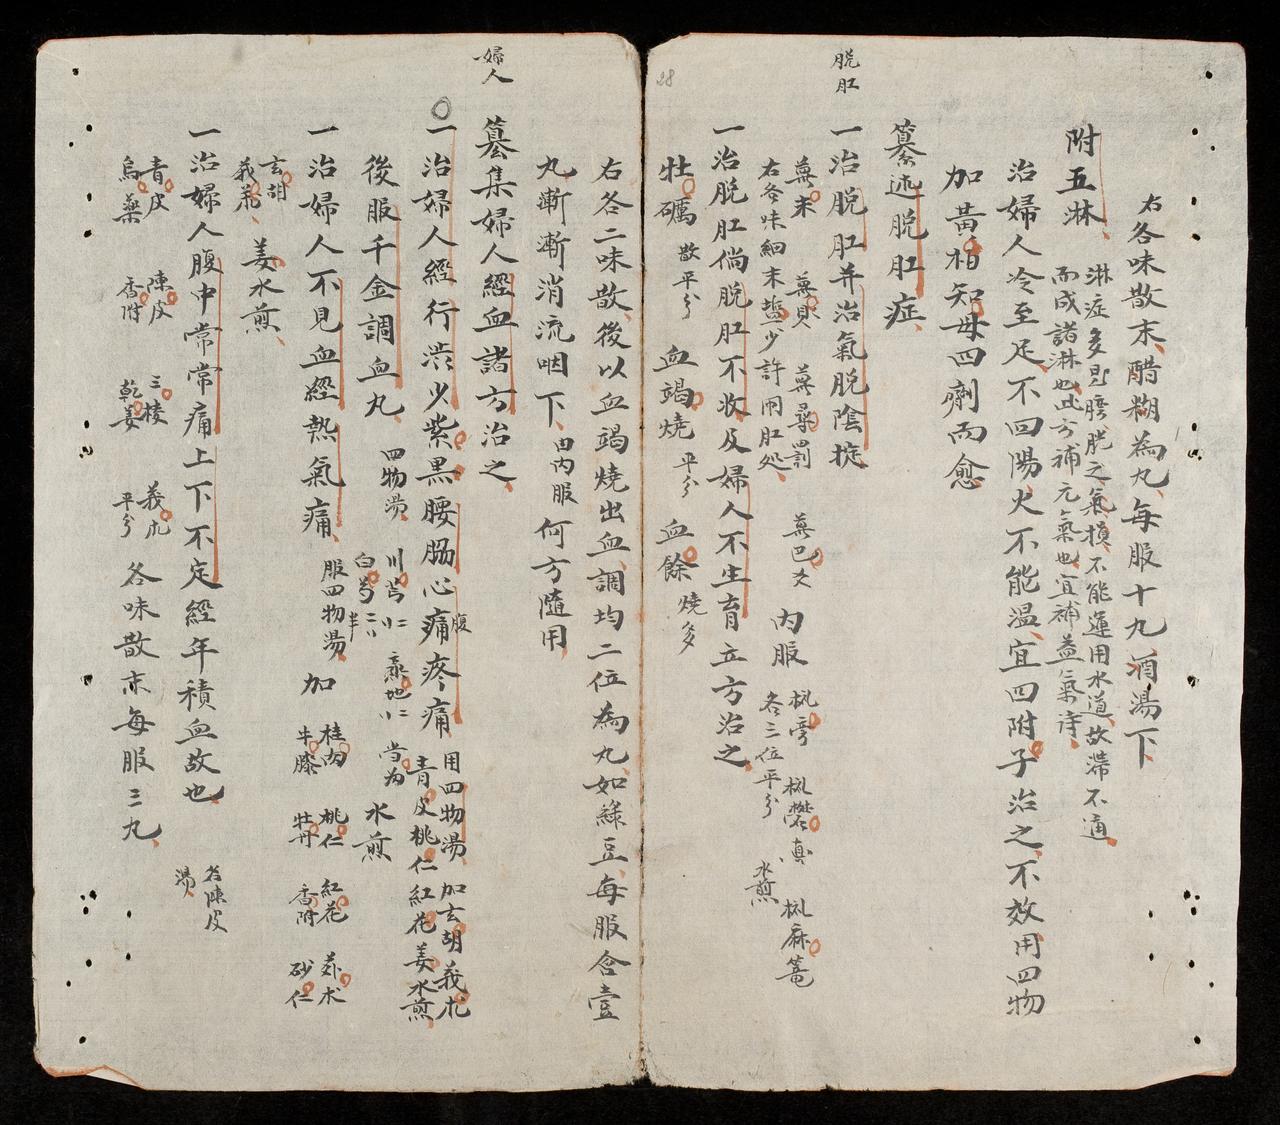 右各味散末醋糊為丸每服十九酒湯下
附五淋
淋症多是膀胱之氣損不能運用水道故滯不通
而成諸淋也此方補元氣也宜補益氣
治婦人冷至足不回陽火不能温宜四附子治之不效用四物
加黃柏知母四劑而愈
纂述脱肛症
脱肛
一治脱肛并治氣脱陰挺
右各味細末塩少許用肛処
内服
各三位平分
水煎
28
一治脱肛倘脱肛不收及婦人不生育立方治之
牡礪 散平分 血竭燒 平分 血餘 燒多
右各二味散後以血竭燒出血調均二位為丸如綠豆每服含壹
丸漸漸消流咽下 由内服 何方隨用
婦人
纂集婦人經血諸方治之
一治婦人經行澁少紫黑腰脇心腹痛疼痛 用四物湯加玄胡莪朮
青皮桃仁紅花姜水煎
後服千金調血丸 四物湯 川芎 熟地 水煎
白芍
一治婦人不見血經熱氣痛 服四物湯 加 桂肉 桃仁 紅花
牛膝 牡丹 香附 砂仁
玄胡
莪朮 姜水煎
一治婦人腹中常常痛上下不定經年積血故也 名陳皮
湯
青皮 陳皮 三棱 莪朮
烏藥 香附 乾姜 平分 各味散末每服三丸